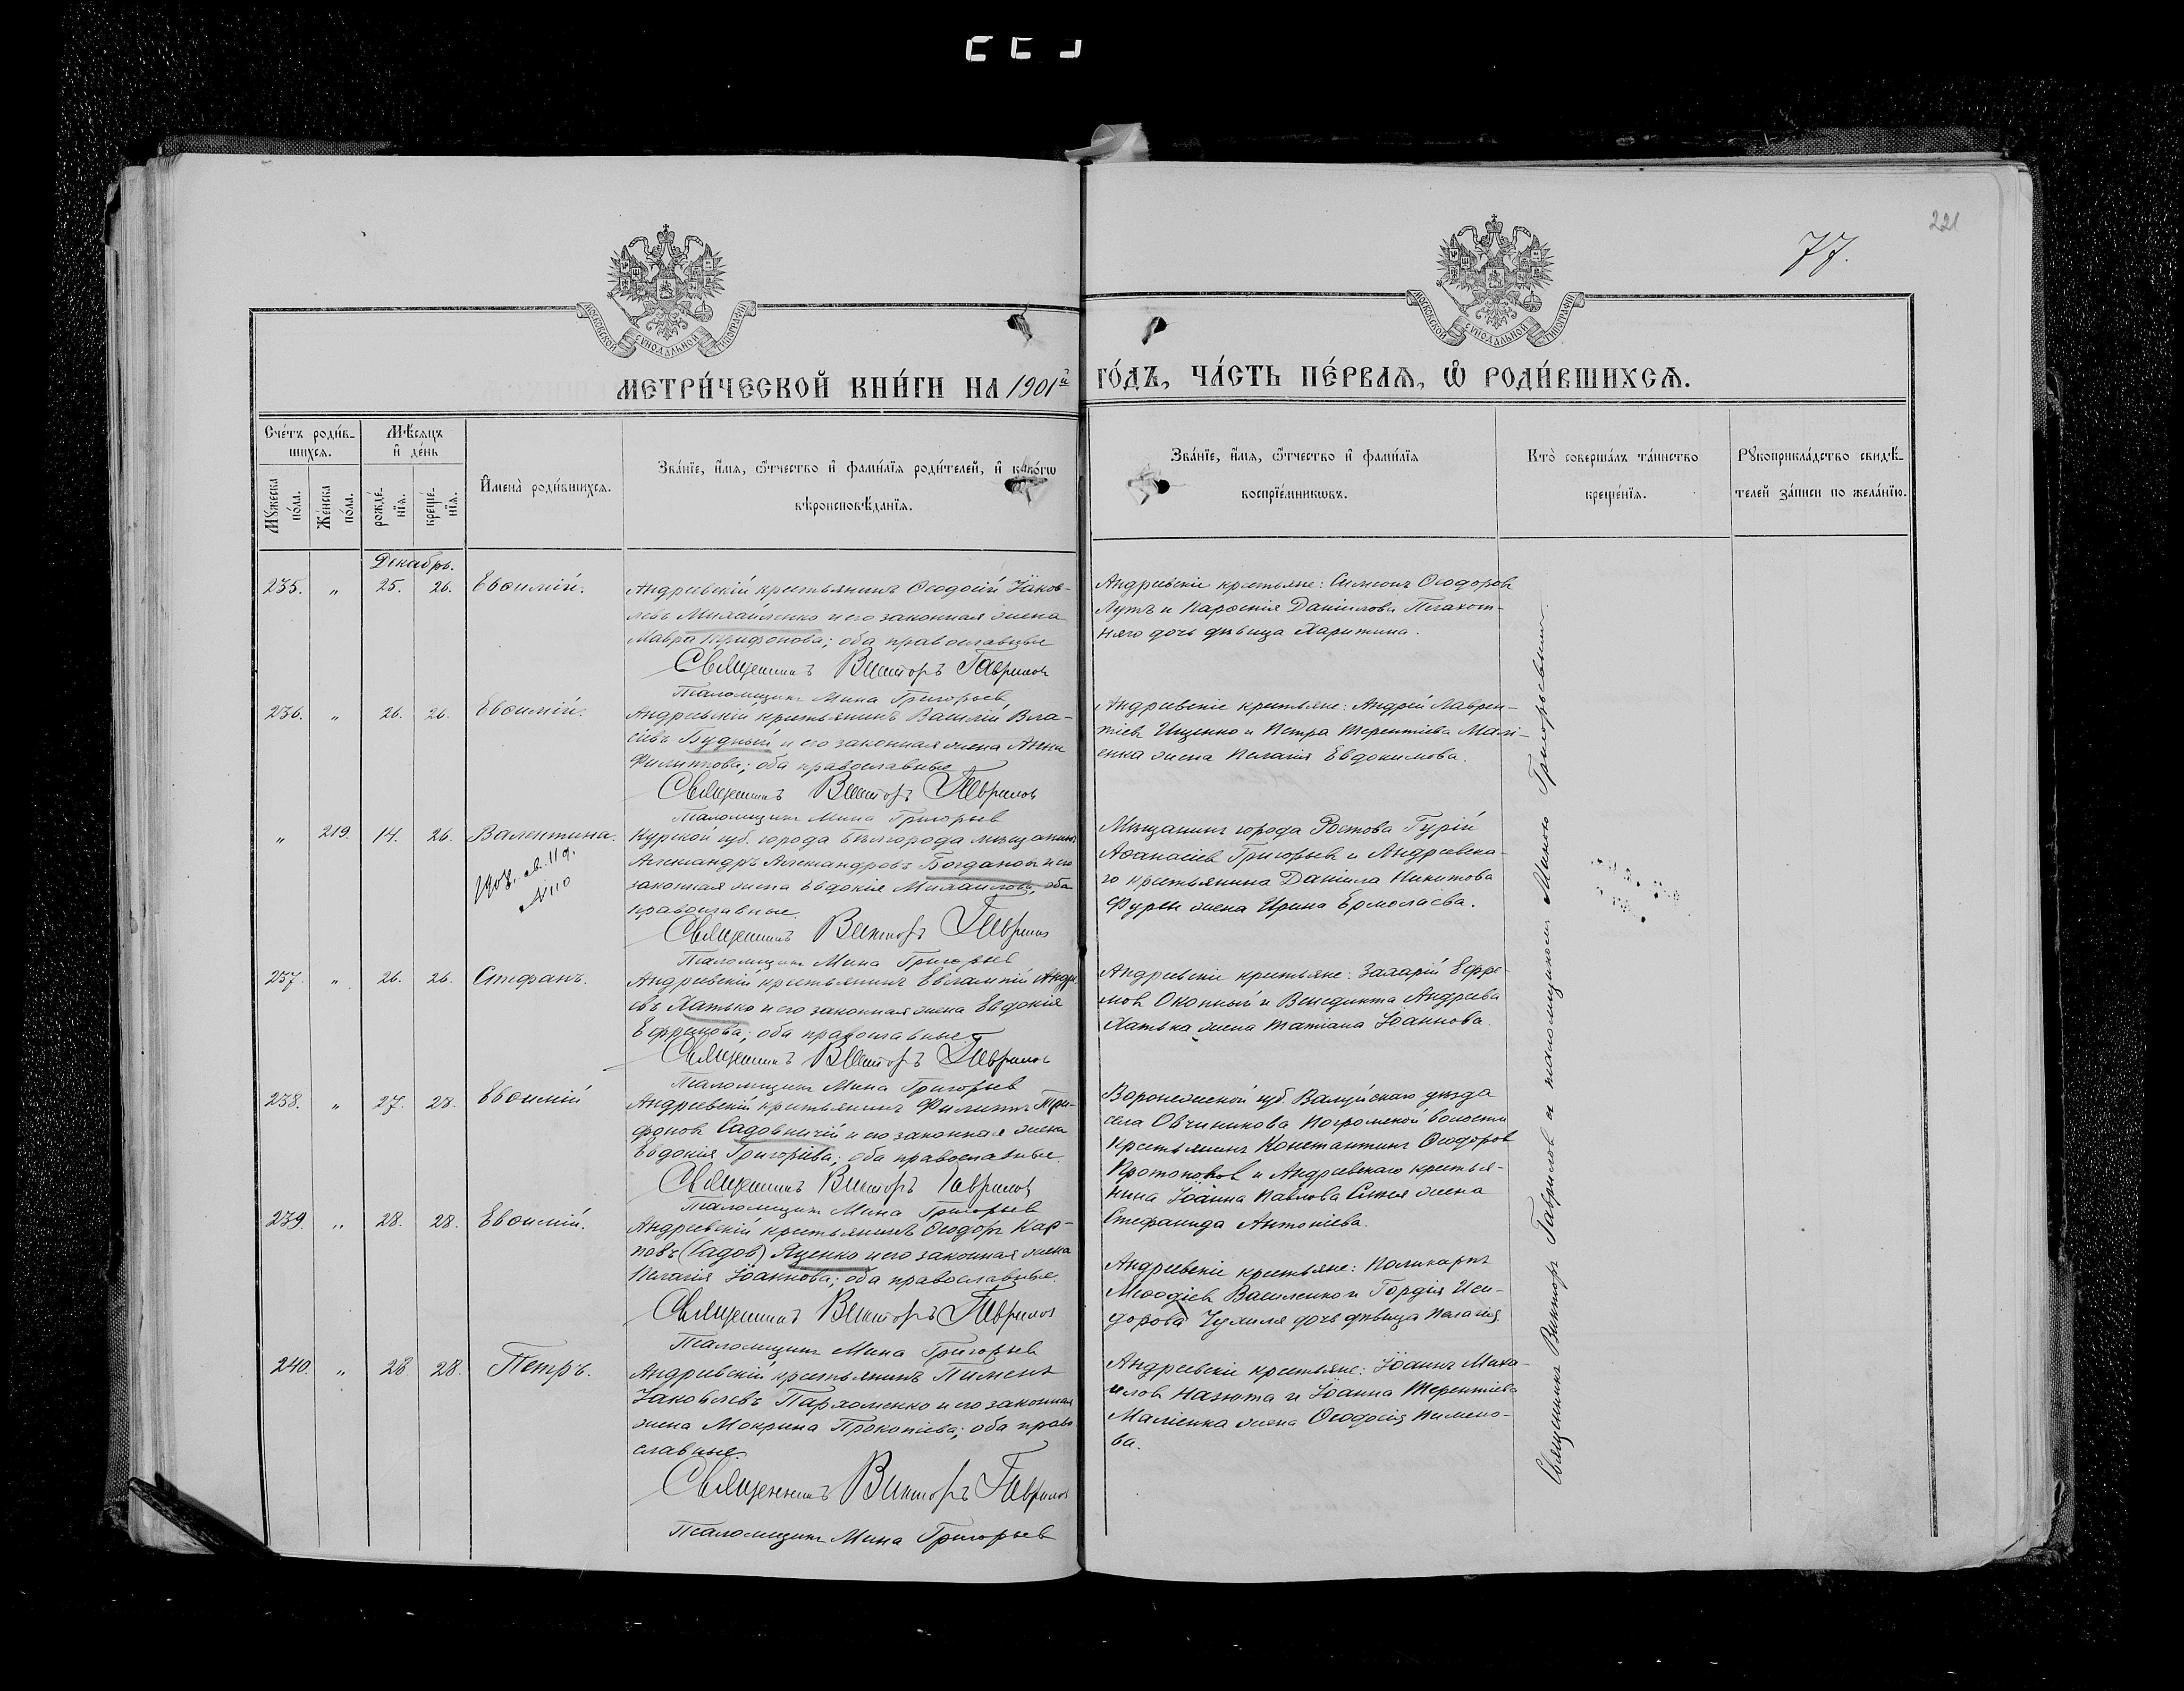 77.
221
МОСКОВСКОЙ СѴНОДАЛЬНОЙ ТИПОГРАФІИ
МОСКОВСКОЙ СѴНОДАЛЬНОЙ ТИПОГРАФІИ
МЕТРИ́ЧЕСКОЙ КНИ́ГИ НА 1901й ГО́ДЪ, ЧА́СТЬ ПЕ́РВАѦ, Ѽ РОДИ́ВШИХСѦ.
Сче́тъ роди́в-
шихсѧ.
Мꙋ́жеска
по́ла.
Же́нска
по́ла.
Мѣ́сѧцъ
и҆ де́нь
рожде́-
нїѧ.
креще́-
нїѧ.
И҆мена̀ роди́вшихсѧ.
Зва́нїе, и҆́мѧ, ѻ҆́тчество и҆ фами́лїѧ роди́телей, и҆ како́гѡ
вѣроисповѣ́данїѧ.
Зва́нїе, и҆́мѧ, ѻ҆́тчество и҆ фами́лїѧ
воспрїе́мникѡвъ.
Кто̀ соверша́лъ та́инство
креще́нїѧ.
Рꙋкоприкла́дство свидѣ́-
телей за́писи по жела́нїю.
Декабрь.
235. " 25. 26. Евѳимій.
Андреевскій крестьянинъ Ѳеодосій Іаков-
левъ Михайленко и его законная жена
Мавра Трифонова; оба православные
Священникъ Викторъ Гаврилов
Псаломщикъ Мина Григорьев
Андреевскіе крестьяне: Симеонъ Ѳеодоров
Лутъ и Парѳенія Даніилова
няго дочь дѣвица Харитина.
236. " 26. 26. Евѳимій.
Андреевскій крестьянинъ Василій Вла-
сіевъ Будный и его законная жена Анна
Филиппова; оба православные
Священникъ Викторъ Гаврилов
Псаломщикъ Мина Григорьев
Андреевскіе крестьяне: Андрей Лаврен-
тіев Ищенко и Петра Терентіева Малі-
енка жена Пелагія Евдокимова.
" 219. 14. 26. Валентина.
№110
Курской губ. города Бѣлгорода мѣщанинъ
Александръ Александровъ Богданов и его
законная жена Евдокія Михаилова; оба
православные.
Священникъ Викторъ Гаврилов
Псаломщикъ Мина Григорьев
Мѣщанинъ города Ростова Гурій
Аѳанасіев Григорьев и Андреевска-
го крестьянина Даніила Никитова
Фурсы жена Ирина Ермолаева.
237. " 26. 26. Стефанъ.
Андреевскій крестьянинъ Евлампій Андре
евъ Хатько и его законная жена Евдокія
Ефремова; оба православные
Священникъ Викторъ Гаврилов
Псаломщикъ Мина Григорьев
Андреевскіе крестьяне: Захарій Ефре-
мов Окопный и Венедикта Андреева
Хатька жена Татіана Іоаннова.
238. " 27. 28. Евѳимій
Андреевскій крестьянинъ Филиппъ Три-
фонов Садовничій и его законная жена
Евдокія Григоріева; оба православные.
Священникъ Викторъ Гаврилов
Псаломщикъ Мина Григорьев
Воронежской губ. Валуйскаго уѣзда
села Овчиникова Погромской волости
крестьянинъ Константинъ Ѳеодоров
Протопопов и Андреевскаго крестья-
нина Іоанна Павлова жена
Стефанида Антоніева.
239. " 28. 28. Евѳимій.
Андреевскій крестьянинъ Ѳеодоръ Кар-
повъ (Садов) Яценко и его законная жена
Пелагія Іоаннова; оба православные.
Священникъ Викторъ Гаврилов
Псаломщикъ Мина Григорьев
Андреевскіе крестьяне: Поликарпъ
Меѳодіев Василенко и Гордія Иси-
дорова Чухиля дочь дѣвица Пелагія.
240. " 28. 28. Петръ.
Андреевскій крестьянинъ Пименъ
Іаковлевъ Пархоменко и его законная
жена Мокрина Прокопіева; оба право
славные.
Священникъ Викторъ Гаврилов
Псаломщикъ Мина Григорьев
Андреевскіе крестьяне: Іоаннъ Миха-
илов Назюта и Іоанна Терентіева
Маліенка жена Ѳеодосія Пимено-
ва.
Священника Виктор Гаврилов и псаломщиком Миною Григорьевым.